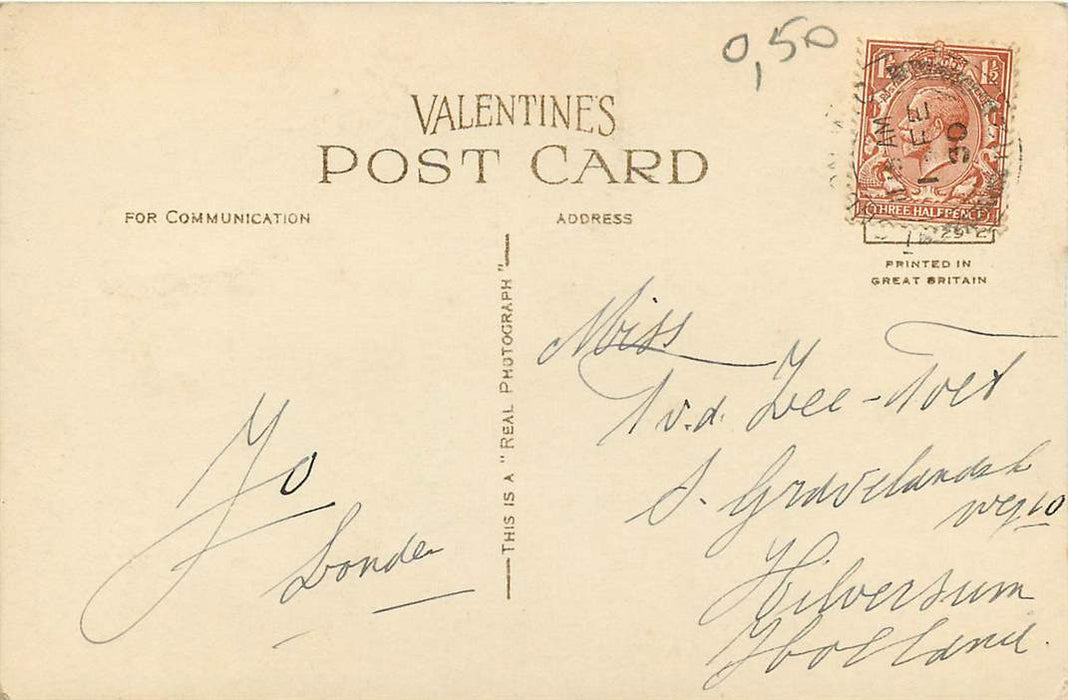 0,50
VALENTINE'S
POST CARD
FOR COMMUNICATION
ADDRESS
1½ 1½
AM
FE
30
THREE HALFPENCE
PRINTED IN
GREAT BRITAIN
THIS IS A "REAL PHOTOGRAPH"
Miss
v.d. Zee-Voet
S. Gravelandsch
weg 10
Hilversum
Holland.
Jo
Londen